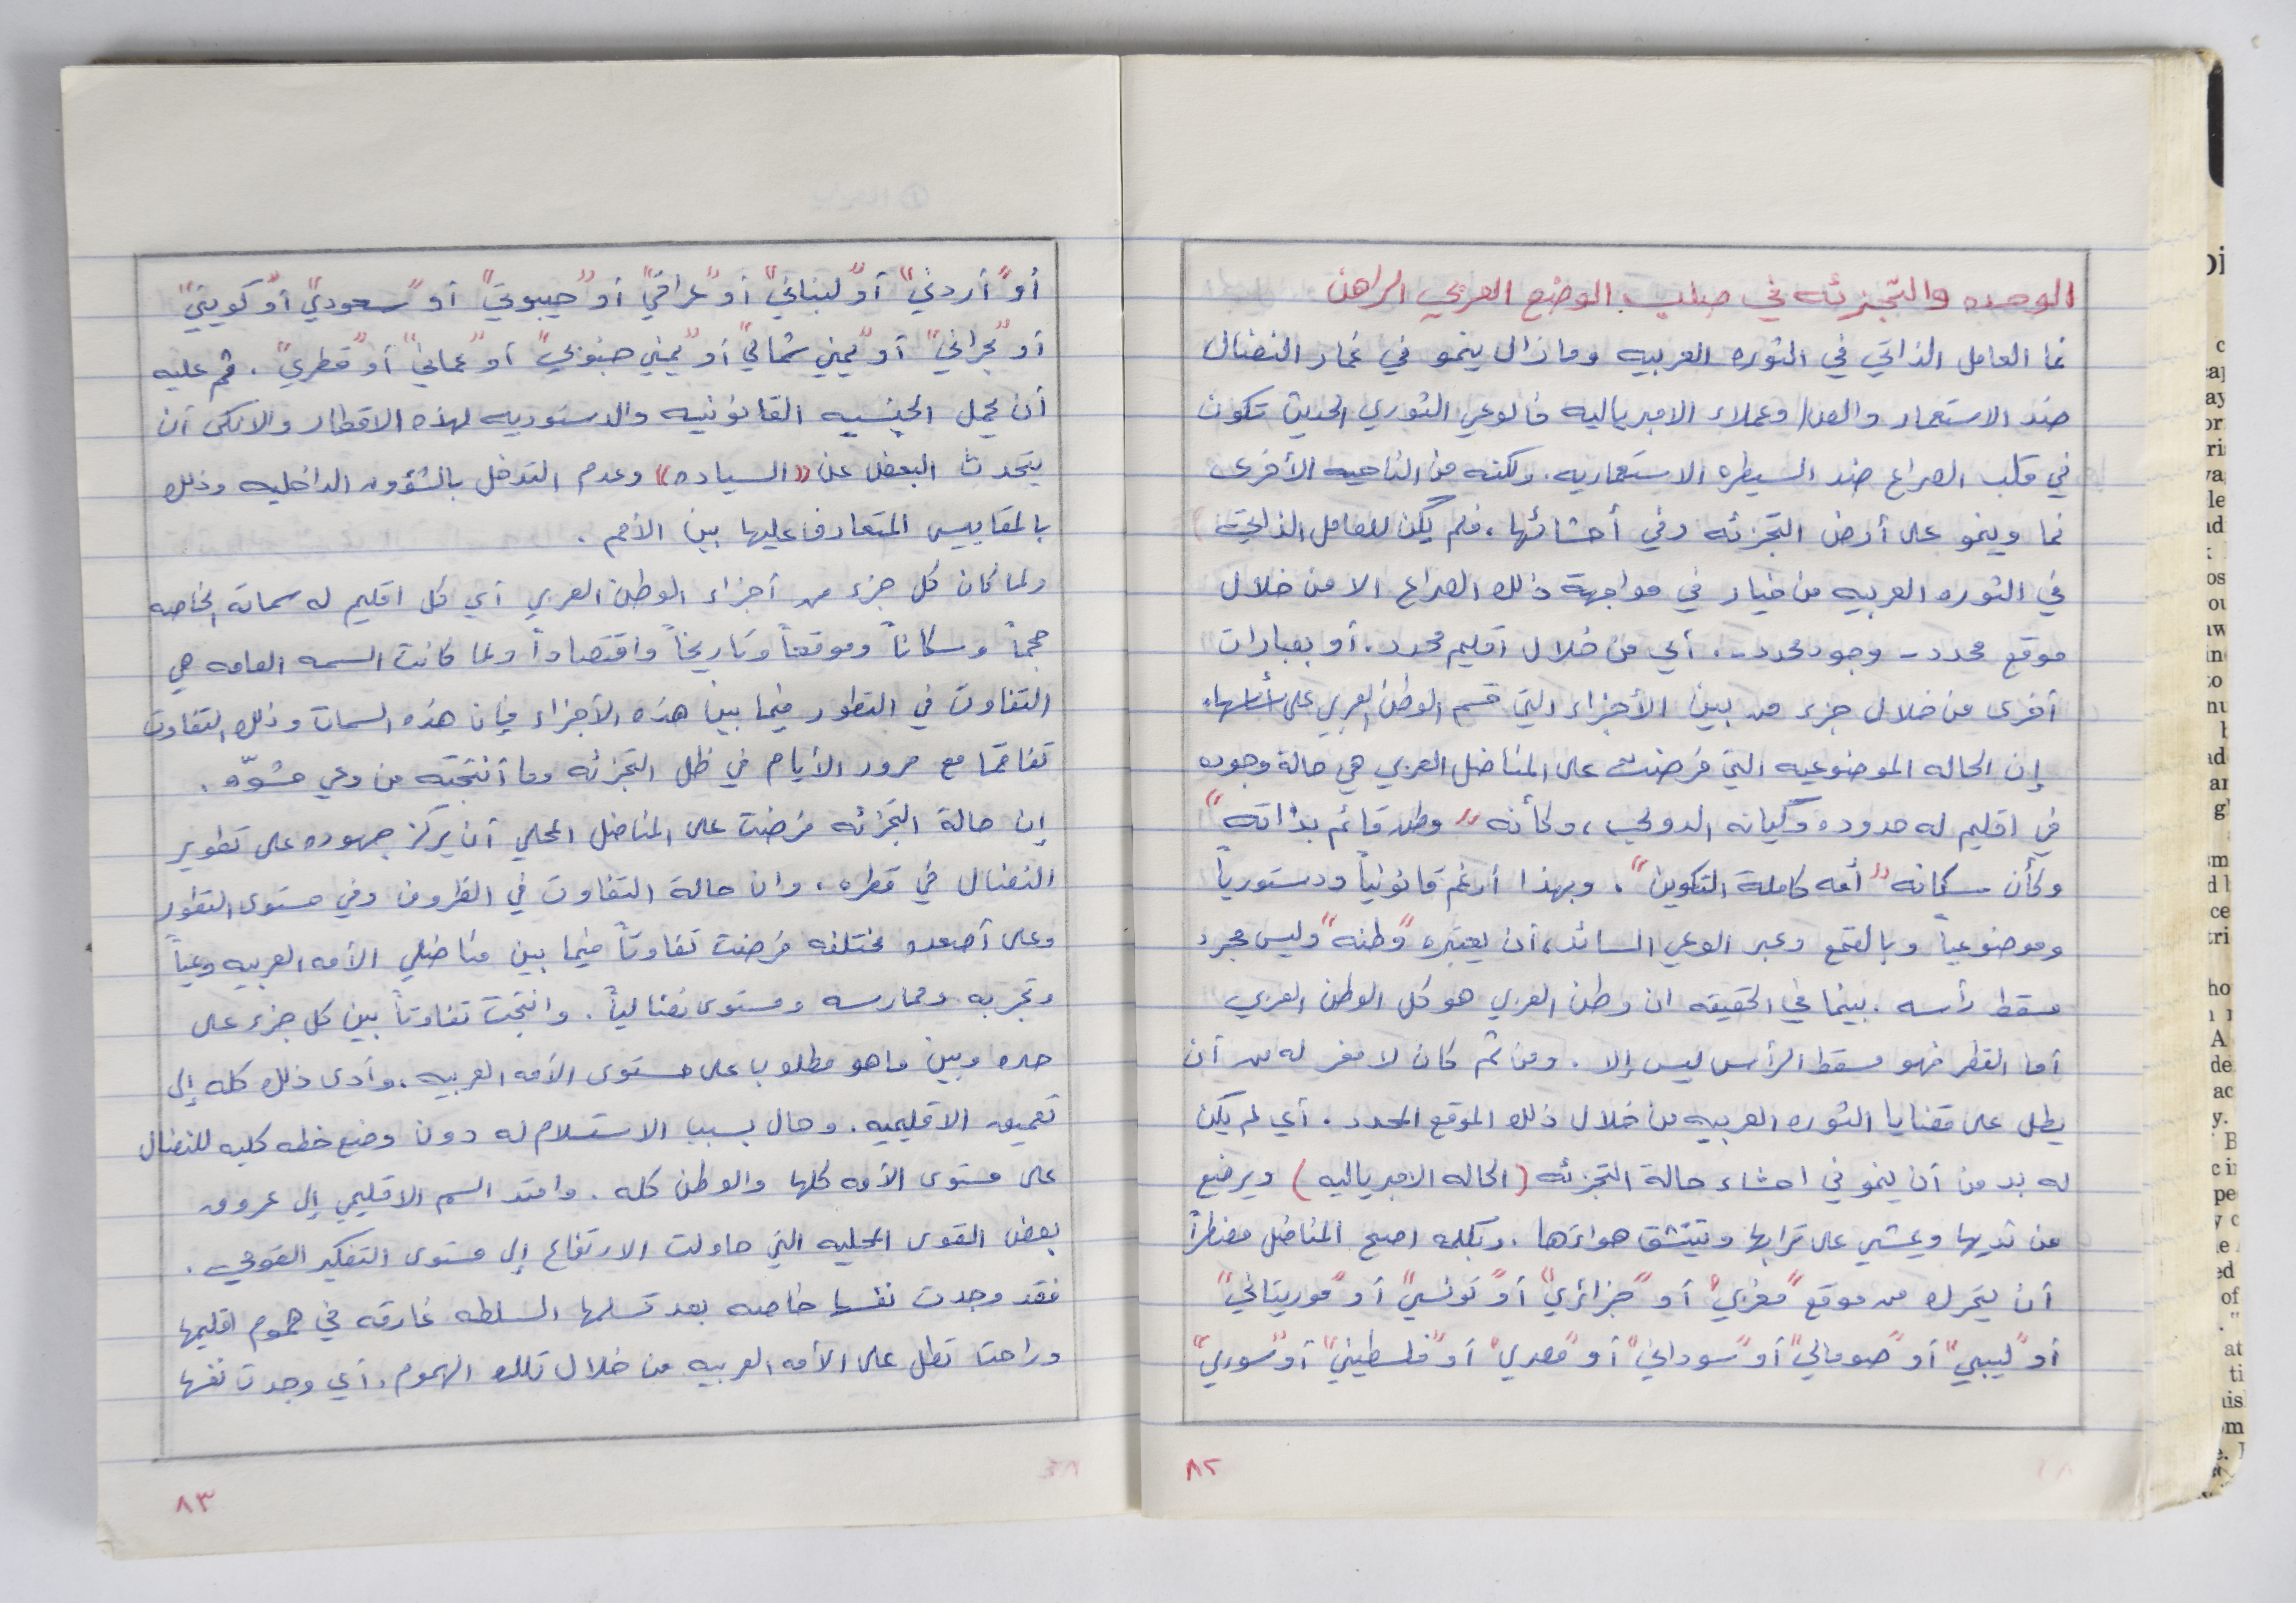 الوحده والتجزئه في صلب الوضع العربي الراهن
نما العامل الذاتي في الثوره العربيه وما زال ينمو في غمار النضال
ضد الاستعمار والعدا وعملاء الامبرياليه فالوعي الثوري الحديث تكون
في قلب الصراع ضد السيطره الاستعماريه. ولكنه من الناحيه الأخرى
نما وينمو على أرض التجزئه وفي أحشائها، فلم يكن للعامل الذاتي
في الثوره العربيه من خيار في مواجهة ذلك الصراع الا من خلال
موقع محدد - وجود محدد - ، أي من خلال اقليم محدد. أو بعبارات
أخرى من خلال جزء من بين الأجزاء التي قسم الوطن العربي على أساسها.
إن الحاله الموضوعيه التي فرضت على المناضل العربي هي حالة وجوده
في اقليم له حدوده وكيانه الدولي، وكأنه "وطن قائم بذاته"
وكأن سكانه "أمه كاملة التكوين". وبهذا أرغم قانونياً ودستورياً
وموضوعياً وبالقمع وعبر الوعي السائد، أن يعتبره "وطنه" وليس مجرد
مسقط رأسه. بينما في الحقيقه ان وطن العربي هو كل الوطن العربي
أما القطر فهو مسقط الرأس ليس إلا. ومن ثم كان لا مفر له من أن
يطل على قضايا الثوره العربيه من خلال ذلك الموقع المحدد. أي لم يكن
له بد من أن ينمو في احشاء حالة التجزئه (الحاله الامبرياليه) ويرضع
من ثديها ويمشي على ترابها ويتنشق هواءها. وبكلمه اصبح المناضل مضطراً
أن يتحرك من موقع "مغربي" أو "جزائري" أو "تونسي" أو "موريتاني"
أو "ليبي" أو "صومالي" أو "سوداني" أو "مصري" أو "فلسطيني" أو "سوري"
٨٢
أو "أردني" أو "لبناني" أو "عراقي" أو "جيبوتي" أو "سعودي" أو "كويتي"
أو "بحراني" أو "يمني شمالي" أو "يمني جنوبي" أو "عماني" أو "قطري". ثم عليه
أن يحمل الجنسيه القانونيه والدستوريه لهذه الاقطار والانكى أن
يتحدث البعض عن «السياده» وعدم التدخل بالشؤون الداخليه وذلك
بالمقاييس المتعارف عليها بين الأمم.
ولما كان كل جزء من أجزاء الوطن العربي أي كل اقليم له سماته الخاصه
حجماً وسكاناً وموقعاً وتاريخاً واقتصاداً ولما كانت السمه العامه هي
التفاوت في التطور فيما بين هذه الأجزاء فإن هذه السمات وذلك التفاوت
تفاقما مع مرور الأيام في ظل التجزئه وما أنتجته من وعي مشوّه.
إن حالة التجزئه فرضت على المناضل المحلي أن يركز جهوده على تطوير
النضال في قطره، وان حالة التفاوت في الظروف وفي مستوى التطور
وعلى أصعده مختلفه فرضت تفاوتاً فيما بين مناضلي الأمه العربيه وعياً
وتجربه وممارسه ومستوى نضالياً. وانتجت تفاوتاً بين كل جزء على
حده وبين ما هو مطلوب على مستوى الأمه العربيه. وأدى ذلك كله إلى
تعميق الاقليميه. وحال بسبب الاستسلام له دون وضع خطه كليه للنضال
على مستوى الأمه كلها والوطن كله. وامتد السم الاقليمي إلى عروق
بعض القوى المحليه التي حاولت الارتفاع إلى مستوى التفكير القومي.
فقد وجدت نفسها خاصه بعد تسلمها السلطه غارقه في هموم اقليمها
وراحت تطل على الأمه العربيه من خلال تلك الهموم. أي وجدت نفسها
٨٣